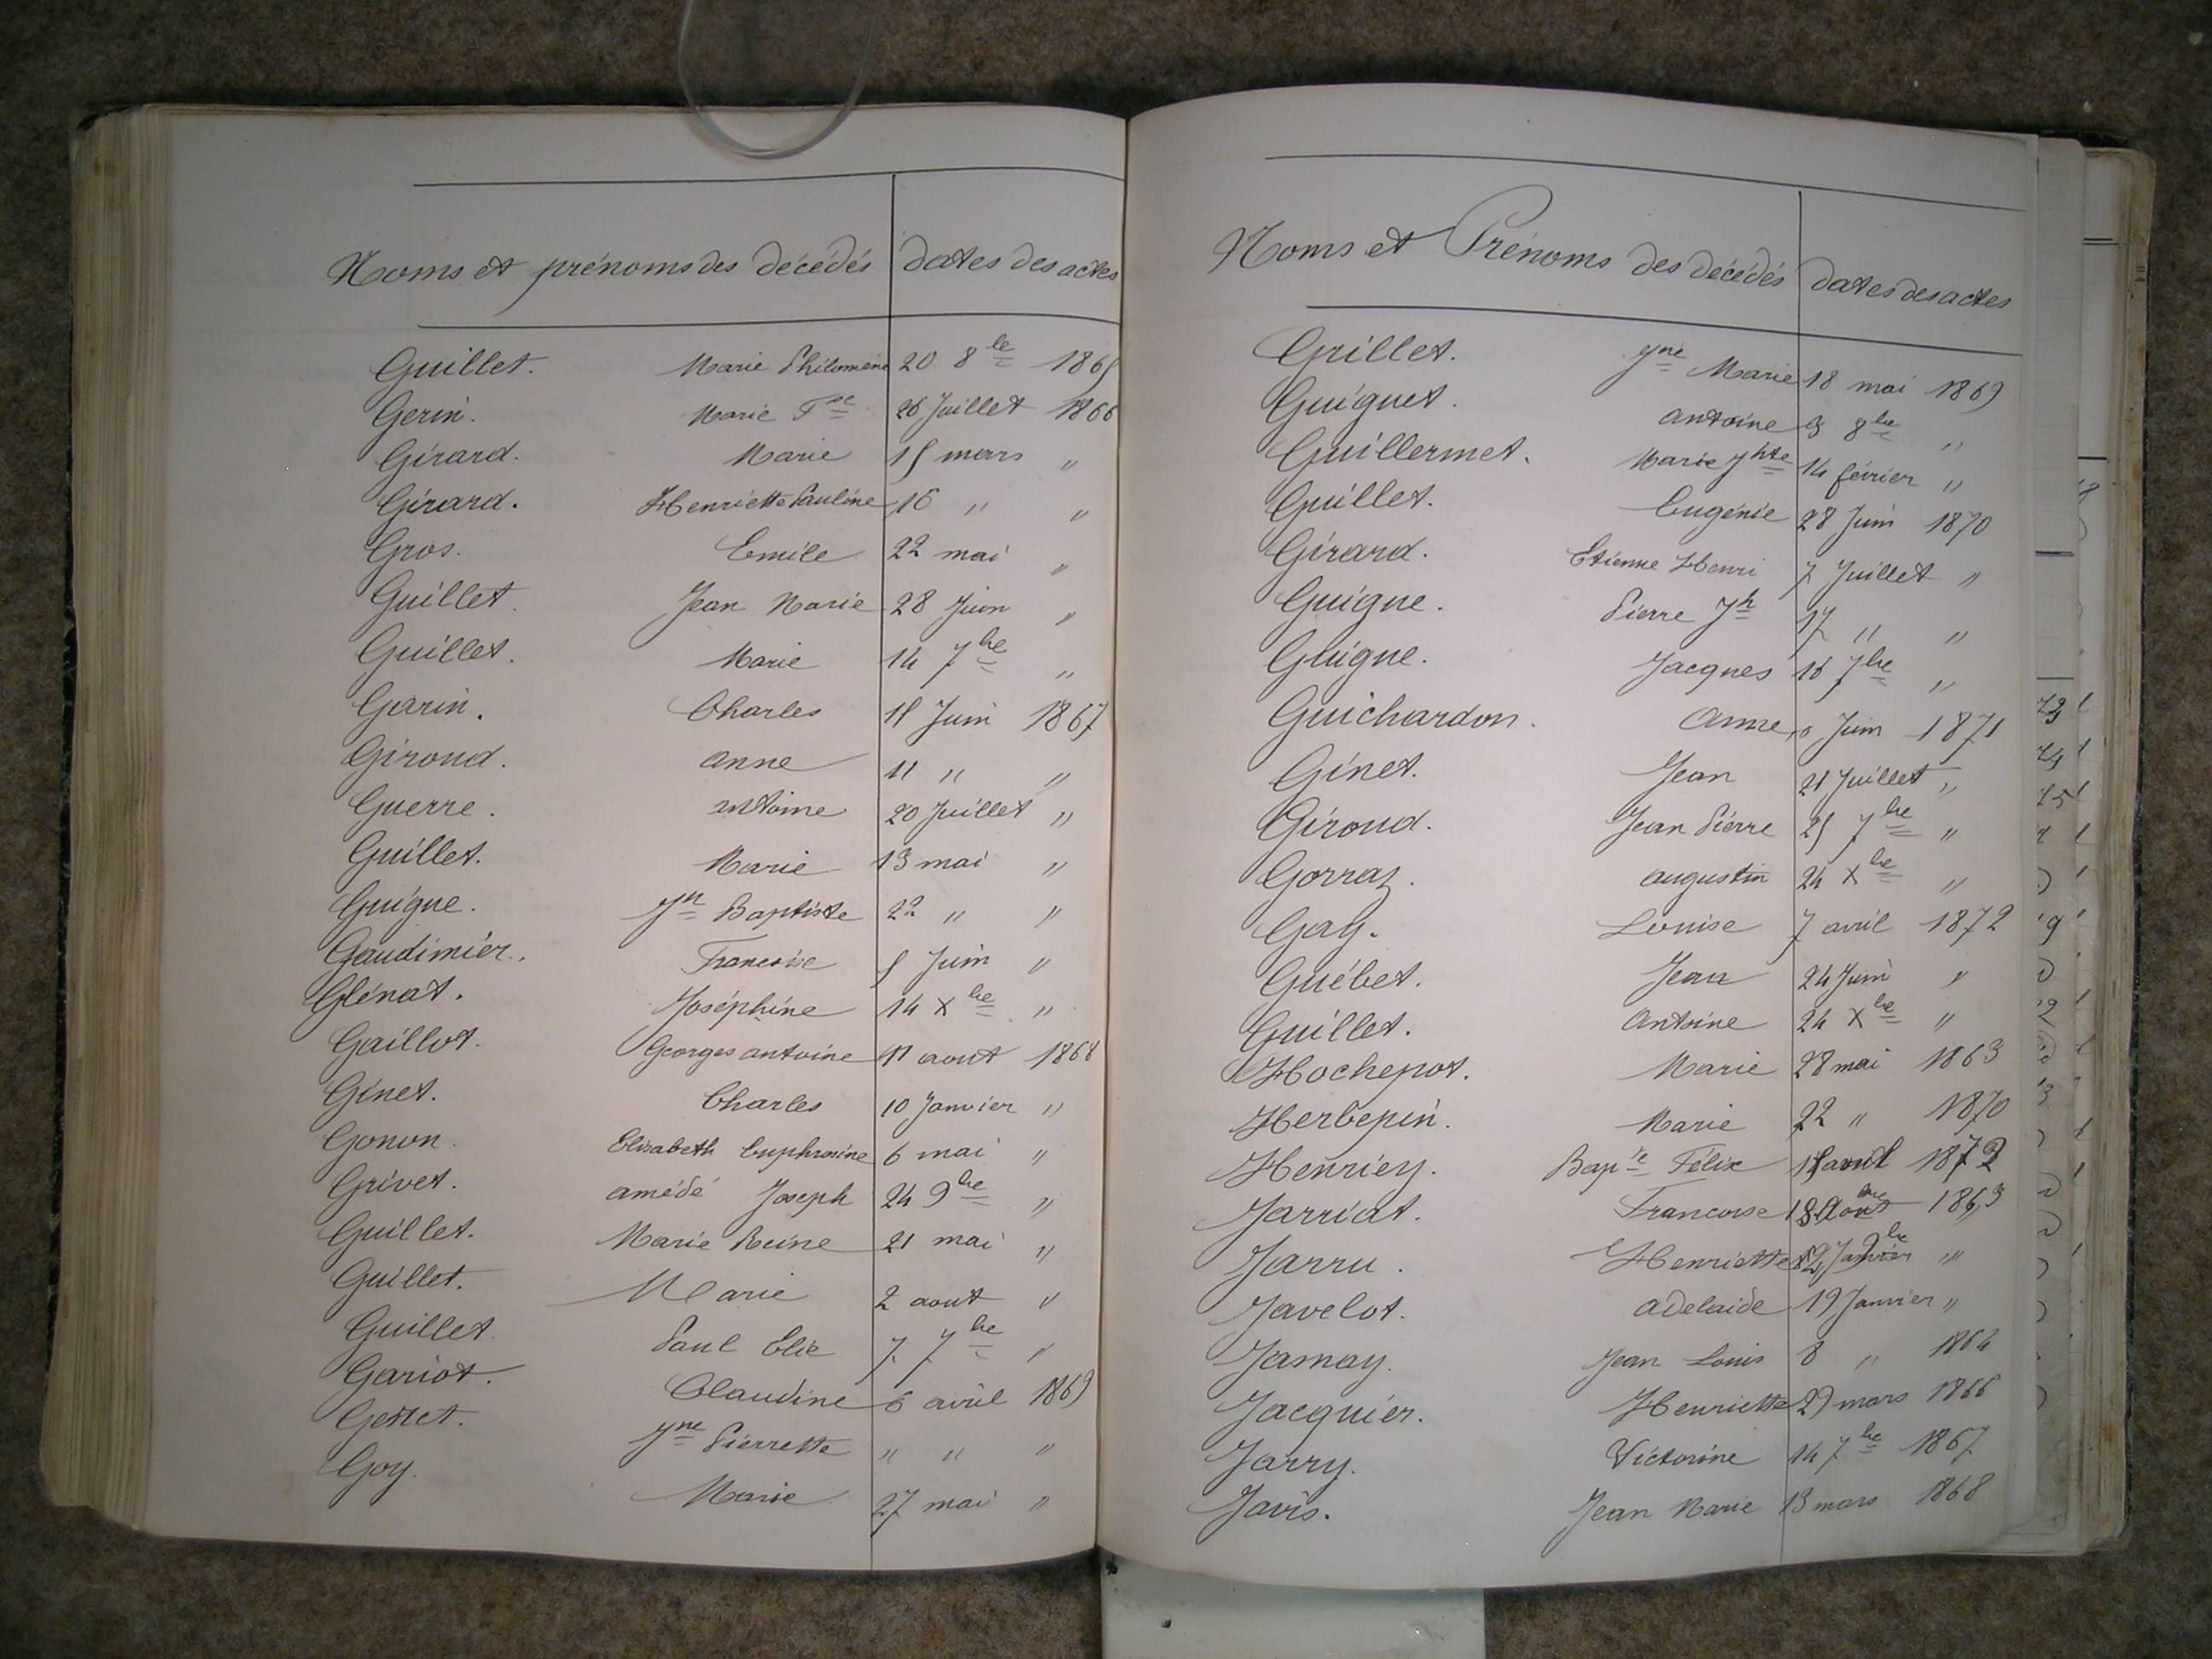 Noms et prénoms des décédés dates des actes
Guillet. Marie Philomène 20 8bre 1865
Gerin. Marie Fse 26 Juillet 1866
Girard. Marie 15 mars "
Girard. Henriette Pauline 16 " "
Gros. Emile 22 mai "
Guillet. Jean Marie 28 Juin "
Guillet. Marie 14 7bre "
Garin. Charles 15 Juin 1867
Giroud. anne 11 " "
Guerre. antoine 20 Juillet "
Guillet. Marie 13 mai "
Guigue. Jn Baptiste 22 " "
Gaudimier. Francoise 5 Juin "
Glénat. Joséphine 14 Xbre "
Gaillot. Georges antoine 11 aout 1868
Ginet. Charles 10 Janvier "
Gonon. Elisabeth Euphrosine 6 mai "
Grivet. amédé Joseph 24 9bre "
Guillet. Marie Reine 21 mai "
Guillet. Marie 2 aout "
Guillet. Paul Elie 7 7bre "
Gariot. Claudine 6 avril 1869
Jne Pierrette " " "
Goy. Marie 27 mai "
Noms et Prénoms des décédés dates des actes
Grillet. Jne Marie 18 mai 1869
Guiguet. antoine 3 8bre "
Guillermet. Marie Jhte 14 février "
Guillet. Eugénie 28 Juin 1870
Girard. Etienne Henri 7 Juillet "
Guigue. Pierre Jh 17 " "
Guigue. Jacques 16 7bre "
Guichardon. Anne Juin 1871
Ginet. Jean 21 Juillet "
Giroud. Jean Pierre 25 7bre "
Gorraz. augustin 24 Xbre "
Gay. Louise 7 avril 1872
Guébet. Jean 24 Juin "
Guillet. Antoine 24 Xbre "
Hochepot. Marie 28 mai 1863
Herbepin. Marie 22 " 1870
Henriey. Bapte Félix 1872
Jarriat. Francoise 1863
Jarru. Henriette "
Javelot. adelaide 19 Janvier "
Jamay. Jean Louis 8 " 1864
Jacquier. Henriette 29 mars 1866
Jarry. Victorine 14 7bre 1867
Javis. Jean Marie 13 mars 1868